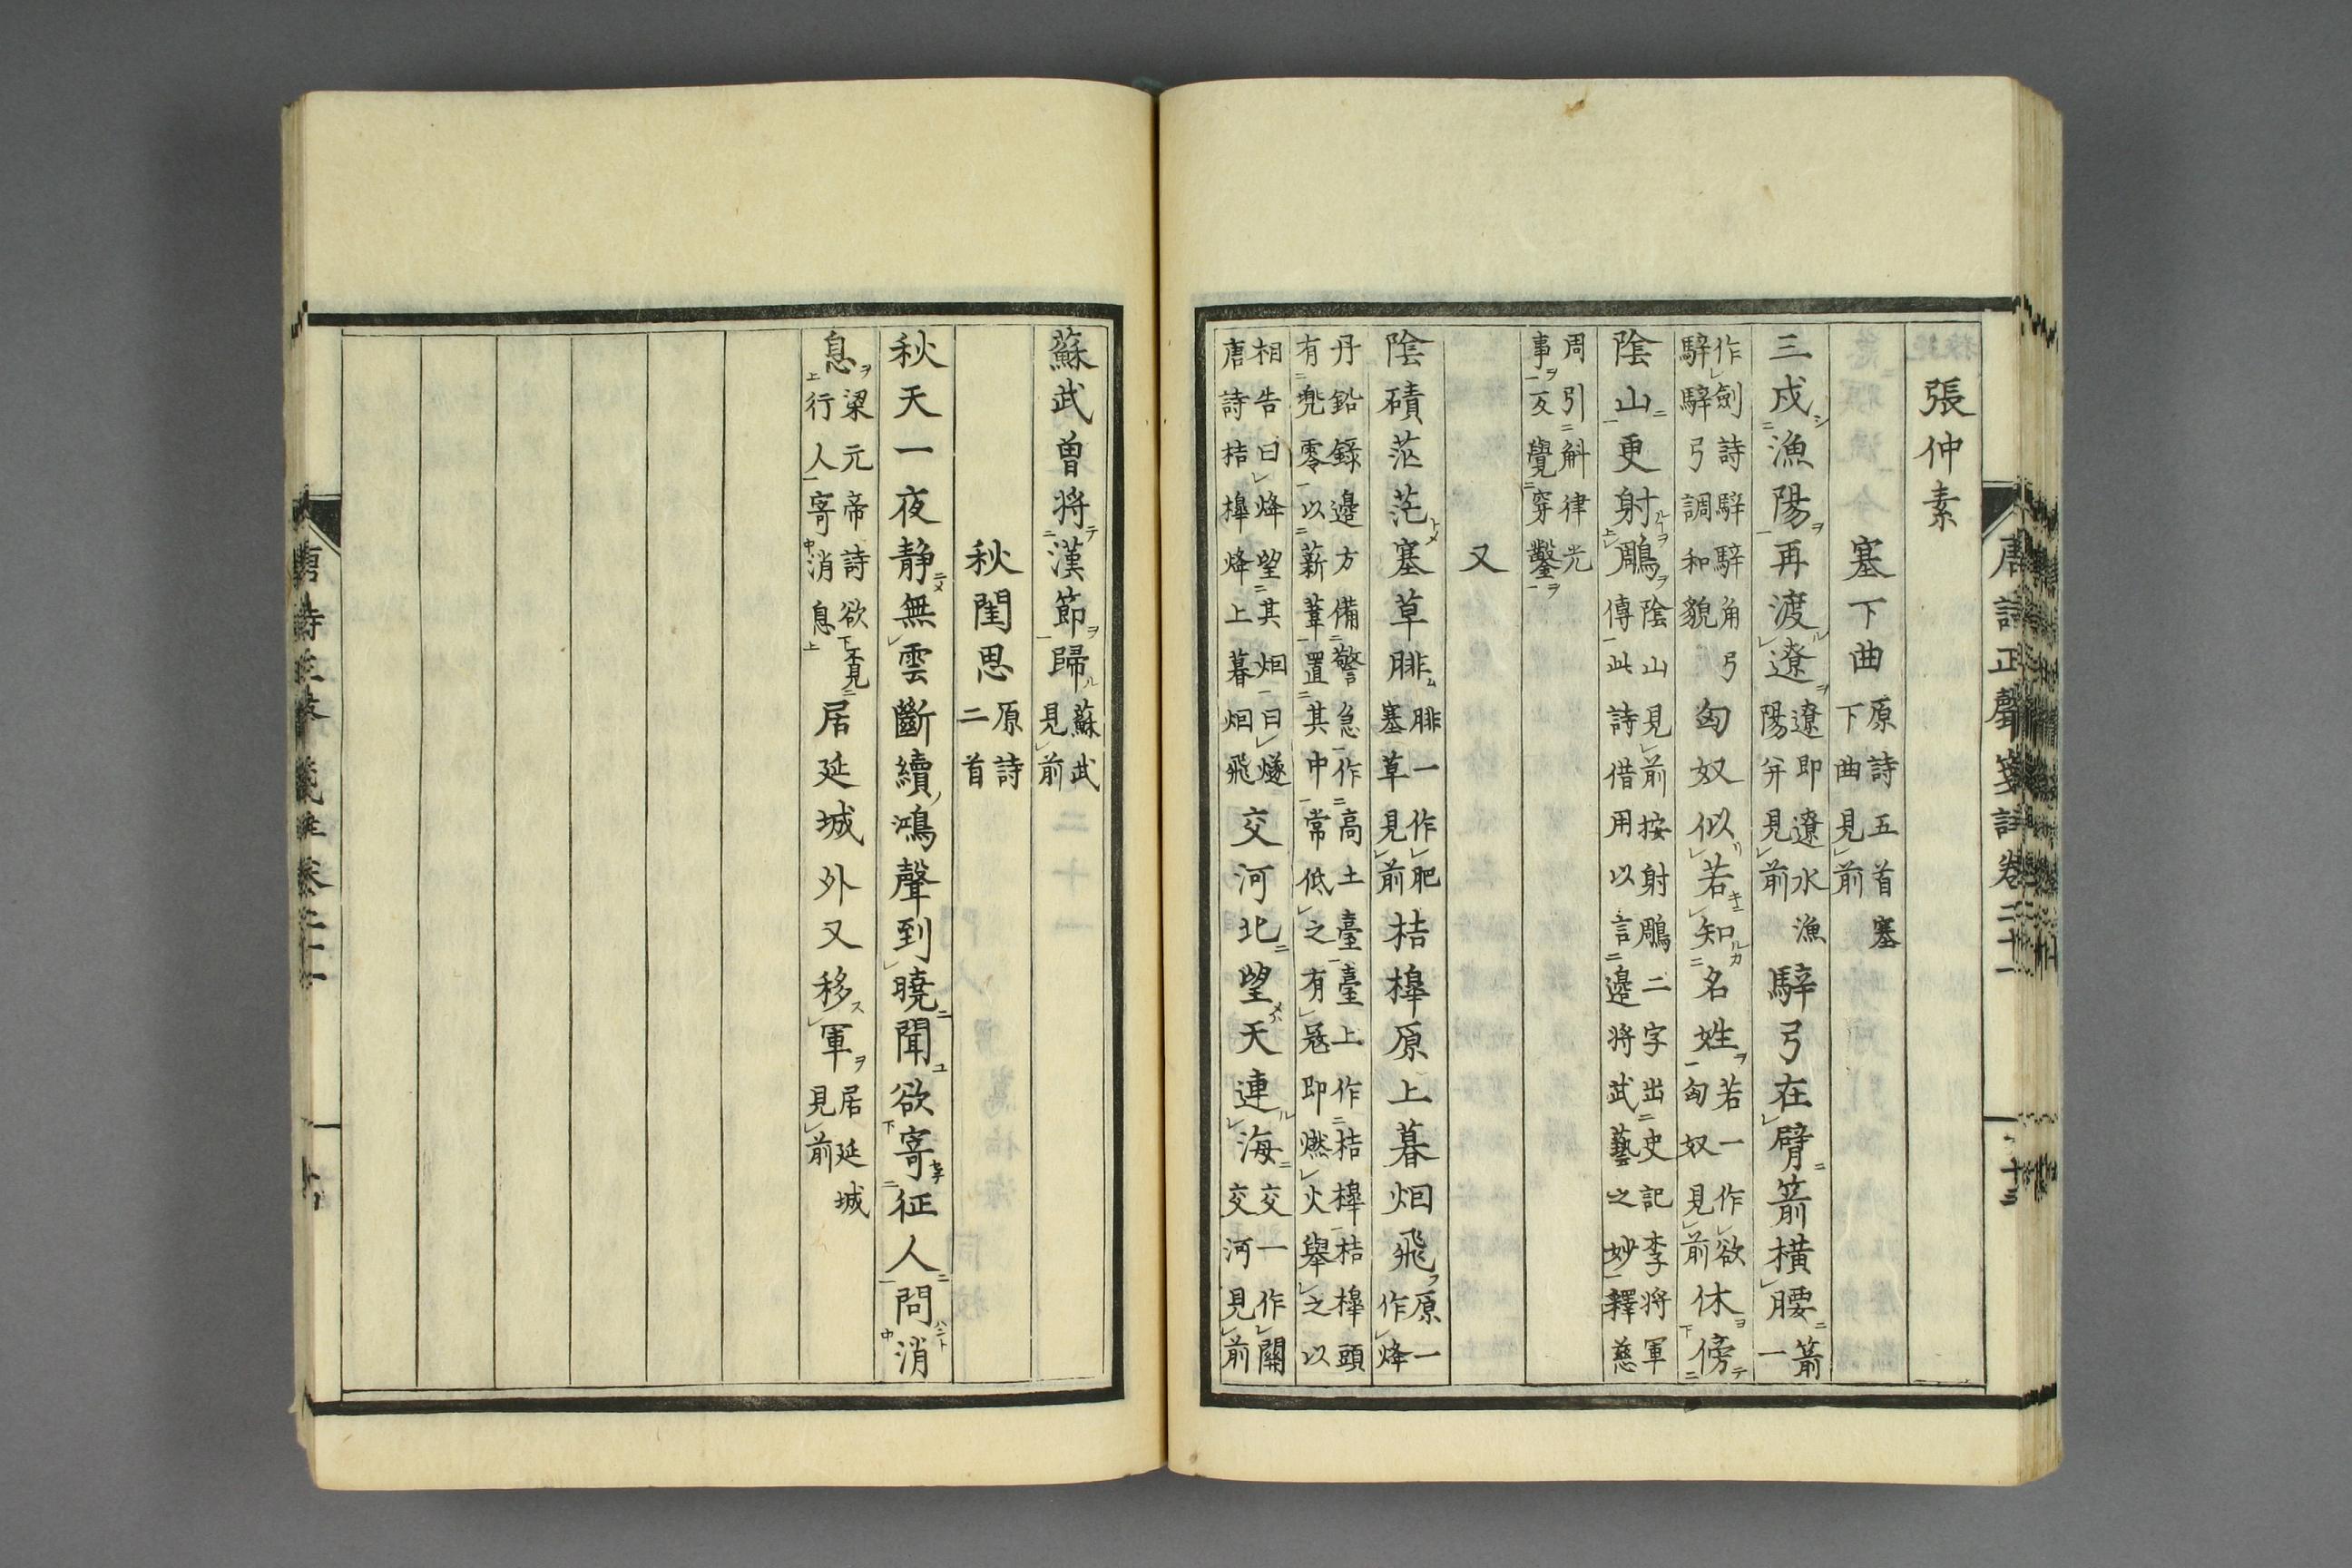 唐詩正聲箋註卷二十一 十三
張仲素
塞下曲 原詩五首塞下曲見前
三戍漁陽再渡遼 遼即遼水漁陽并見前 騂弓在臂箭橫腰 箭一
作劍詩騂騂角弓騂騂弓調和貌 匈奴似若知名姓 若一作欲匈奴見前 休傍
陰山更射鵰 陰山見前按射鵰二字出史記李將軍傳此詩借用以言邊將武藝之妙釋慈
周引斛律光事反覺穿鑿
又
陰磧茫茫塞草腓 腓一作肥塞草見前 桔槹原上暮烟飛 原一作烽
丹鉛錄邊方備警急作高土臺臺上作桔槹桔槹頭有兜零以薪葦置其中常低之有寇即燃火舉之以
相告曰烽望其烟曰燧唐詩桔槹烽上暮烟飛 交河北望天連海 交一作關交河見前
蘇武曾將漢節歸 蘇武見前
秋閨思 原詩二首
秋天一夜静無雲斷續鴻聲到曉聞欲寄征人問消
息 梁元帝詩欲不見行人寄消息 居延城外又移軍 居延城見前